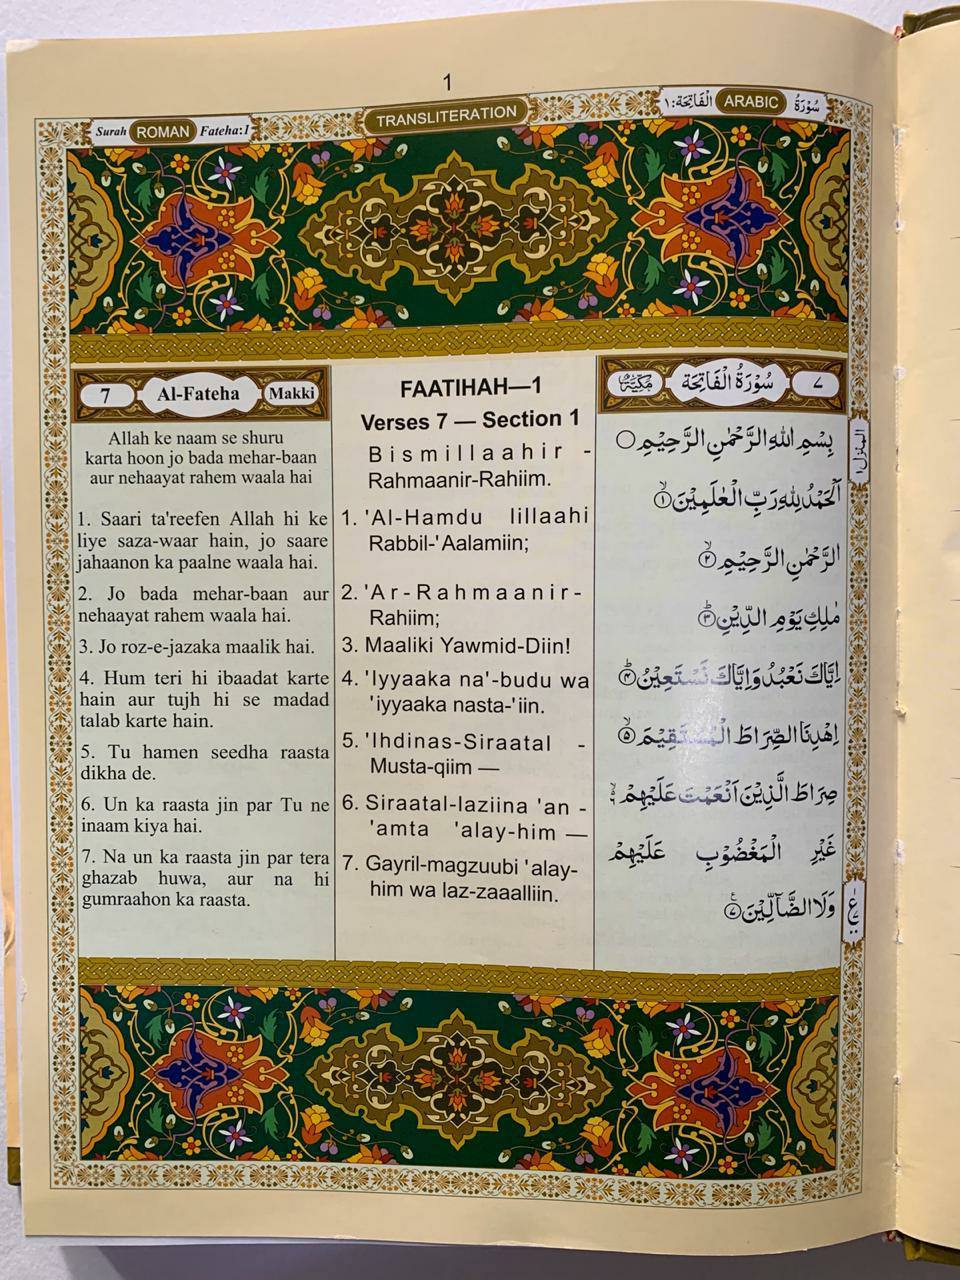 1
Surah ROMAN Fateha:1
TRANSLITERATION
سُوْرَةُ ARABIC الْفَاتِحَة:١
7 Al-Fateha Makki
Allah ke naam se shuru
karta hoon jo bada mehar-baan
aur nehaayat rahem waala hai
1. Saari ta'reefen Allah hi ke
liye saza-waar hain, jo saare
jahaanon ka paalne waala hai.
2. Jo bada mehar-baan aur
nehaayat rahem waala hai.
3. Jo roz-e-jazaka maalik hai.
4. Hum teri hi ibaadat karte
hain aur tujh hi se madad
talab karte hain.
5. Tu hamen seedha raasta
dikha de.
6. Un ka raasta jin par Tu ne
inaam kiya hai.
7. Na un ka raasta jin par tera
ghazab huwa, aur na hi
gumraahon ka raasta.
FAATIHAH—1
Verses 7 — Section 1
Bismillaahir -
Rahmaanir-Rahiim.
1. 'Al-Hamdu lillaahi
Rabbil-'Aalamiin;
2. 'Ar-Rahmaanir-
Rahiim;
3. Maaliki Yawmid-Diin!
4. 'Iyyaaka na'-budu wa
'iyyaaka nasta-'iin.
5. 'Ihdinas-Siraatal -
Musta-qiim —
6. Siraatal-laziina 'an -
'amta 'alay-him —
7. Gayril-magzuubi 'alay-
him wa laz-zaaalliin.
٧ سُوْرَةُ الْفَاتِحَة مَكِّيَّة
بِسْمِ اللهِ الرَّحْمٰنِ الرَّحِيْمِ ○
اَلْحَمْدُ لِلّٰهِ رَبِّ الْعٰلَمِيْنَ ۙ﴿١﴾
الرَّحْمٰنِ الرَّحِيْمِ ۙ﴿٢﴾
مٰلِكِ يَوْمِ الدِّيْنِ ؕ﴿٣﴾
اِيَّاكَ نَعْبُدُ وَاِيَّاكَ نَسْتَعِيْنُ ؕ﴿٤﴾
اِهْدِنَا الصِّرَاطَ الْمُسْتَقِيْمَ ۙ﴿٥﴾
صِرَاطَ الَّذِيْنَ اَنْعَمْتَ عَلَيْهِمْ ۙ﴿٦﴾
غَيْرِ الْمَغْضُوْبِ عَلَيْهِمْ
وَلَا الضَّآلِّيْنَ ﴿٧﴾
المنزل ١